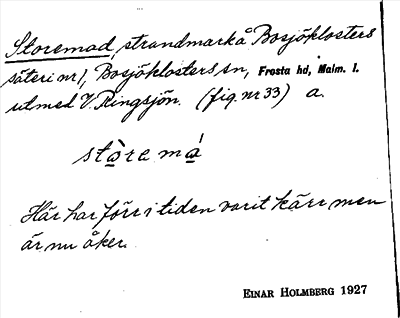 Storemad, strandmark å Bosjöklosters
säteri nr 1, Bosjöklosters sn, Frosta hd, Malm. l.
utmed V. Ringsjön. (fig. nr 33) a.
stòre má
Här har förr i tiden varit kärr men
är nu åker.
EINAR HOLMBERG 1927